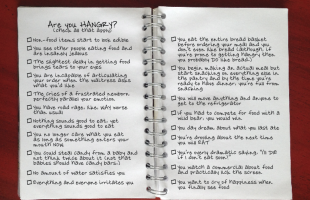 Are you HANGRY?
(check all that apply)
Non-food items start to look edible
You see other people eating food and
are insanely jealous
The slightest delay in getting food
brings tears to your eyes
You are incapable of articulating
your order when the waitress asks
what you'd like
The cries of a frustrated newborn
perfectly parallel your emotion
You have road rage, way worse
than usual
Nothing sounds good to eat, yet
everything sounds good to eat
You no longer care what you eat
as long as something enters your
mouth NOW
You could steal candy from a baby and
not think twice about it (not that
babies should have candy bars.)
No amount of water satisfies you
Everything and everyone irritates you
You eat the entire bread basket
before ordering your meal (but you
don't even like bread (although if
you're prone to getting hangry then
you probably DO like bread.)
You begin making an actual meal but
start snacking on everything else in
the pantry and by the time you're
ready to have dinner, you're full from
snacking
You will move anything and anyone to
get to the refrigerator
If you had to compete for food with a
wild bear, you would win
You day dream about what you last ate
You're drooling about the next time
you will EAT
You're overly dramatic saying, "I'll DIE
if I don't eat soon!"
You watch a commercial about food
and practically lick the screen
You want to cry of happiness when
you finally see food